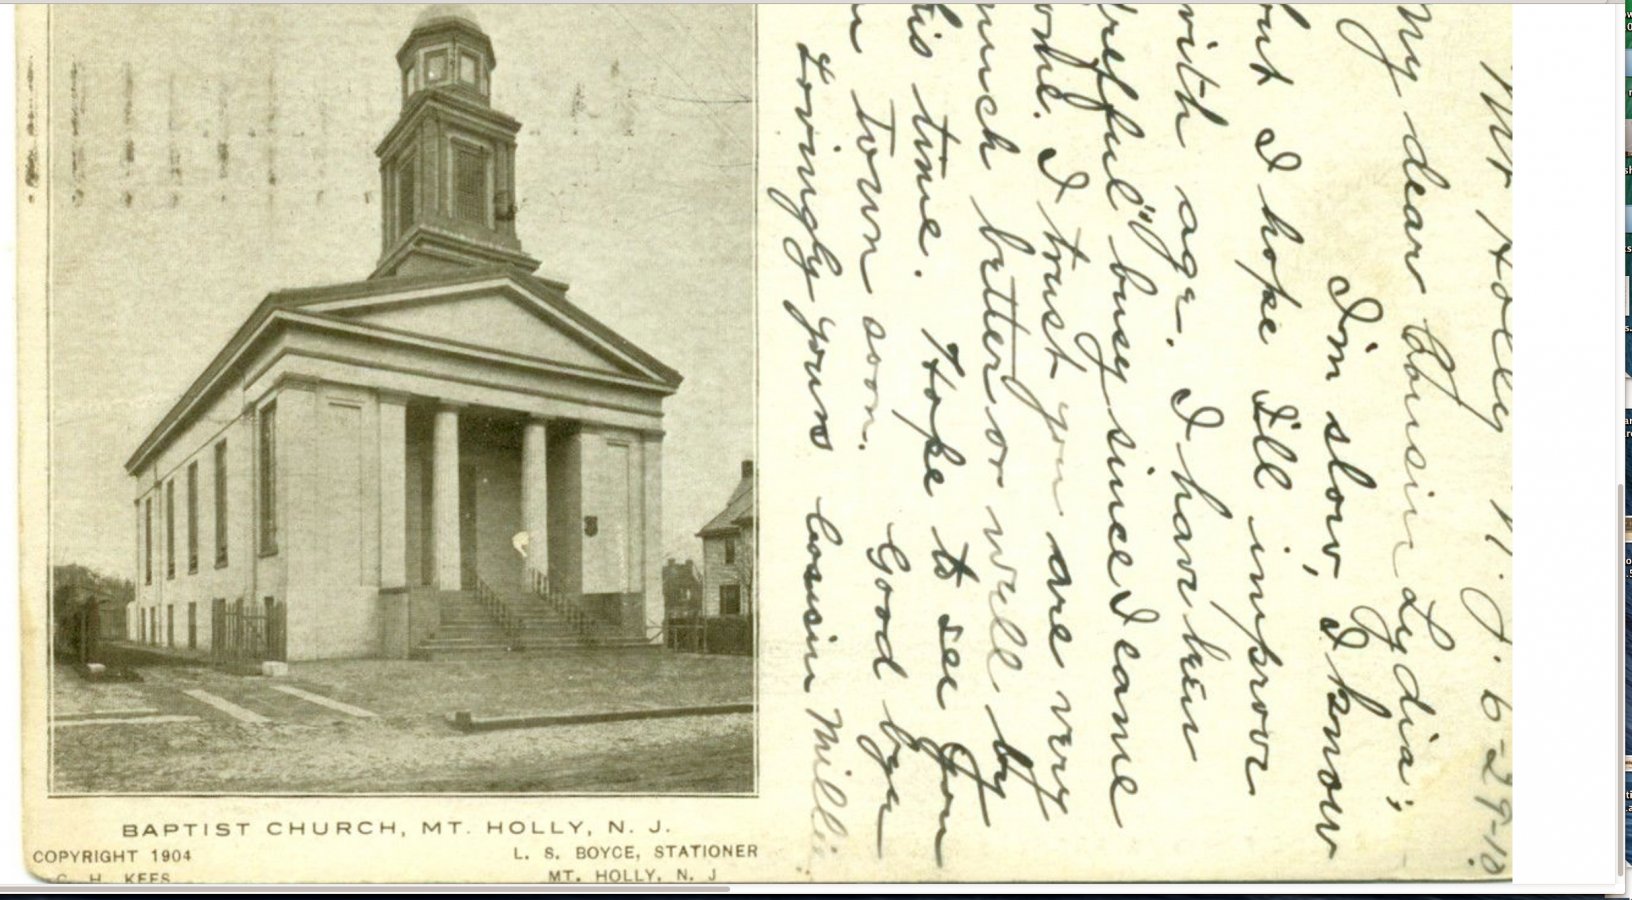 Mt Holly N. J. 6-29-10.
My dear Cousin Lydia;
I'm slow, I know
but I hope I'll improve
with age. I have been
busy since I came
home. I trust you are very
much better or well by
this time. Hope to see you
town soon. Good bye
Lovingly yours Cousin Millie
BAPTIST CHURCH, MT. HOLLY, N. J.
COPYRIGHT 1904
C. H. KEES
L. S. BOYCE, STATIONER
MT. HOLLY, N. J